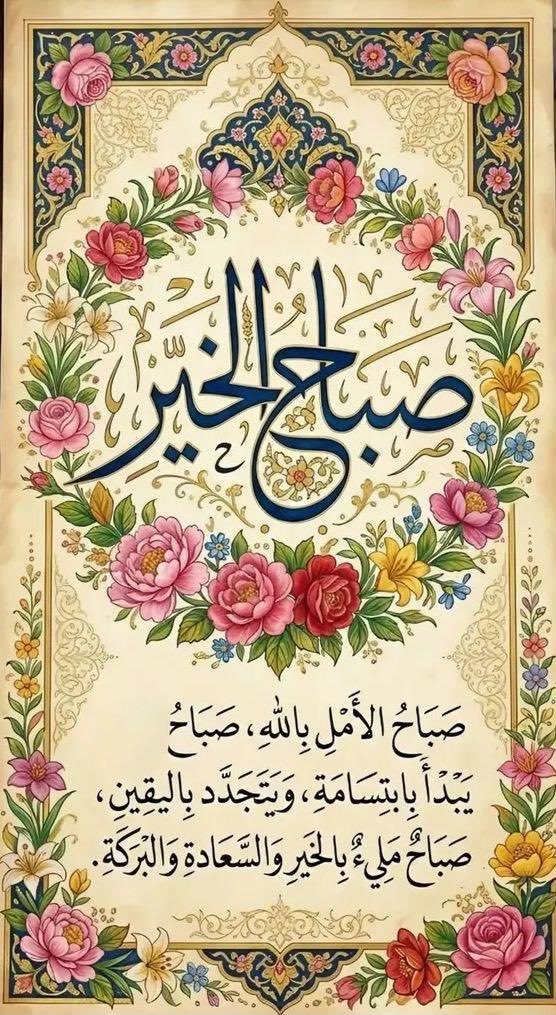 صباح الخيَّر
صَبَاحُ الأَمْلِ بِاللهِ، صَبَاحُ
يَبْدْأَ بِابتِسَامَةِ، وَيَتَجَدَّد بِاليَقِينِ،
صَبَاحٌ مَلِيءٌ بِالخَيرِ وَالسَّعَادةِ وَالبْرَكَةِ.